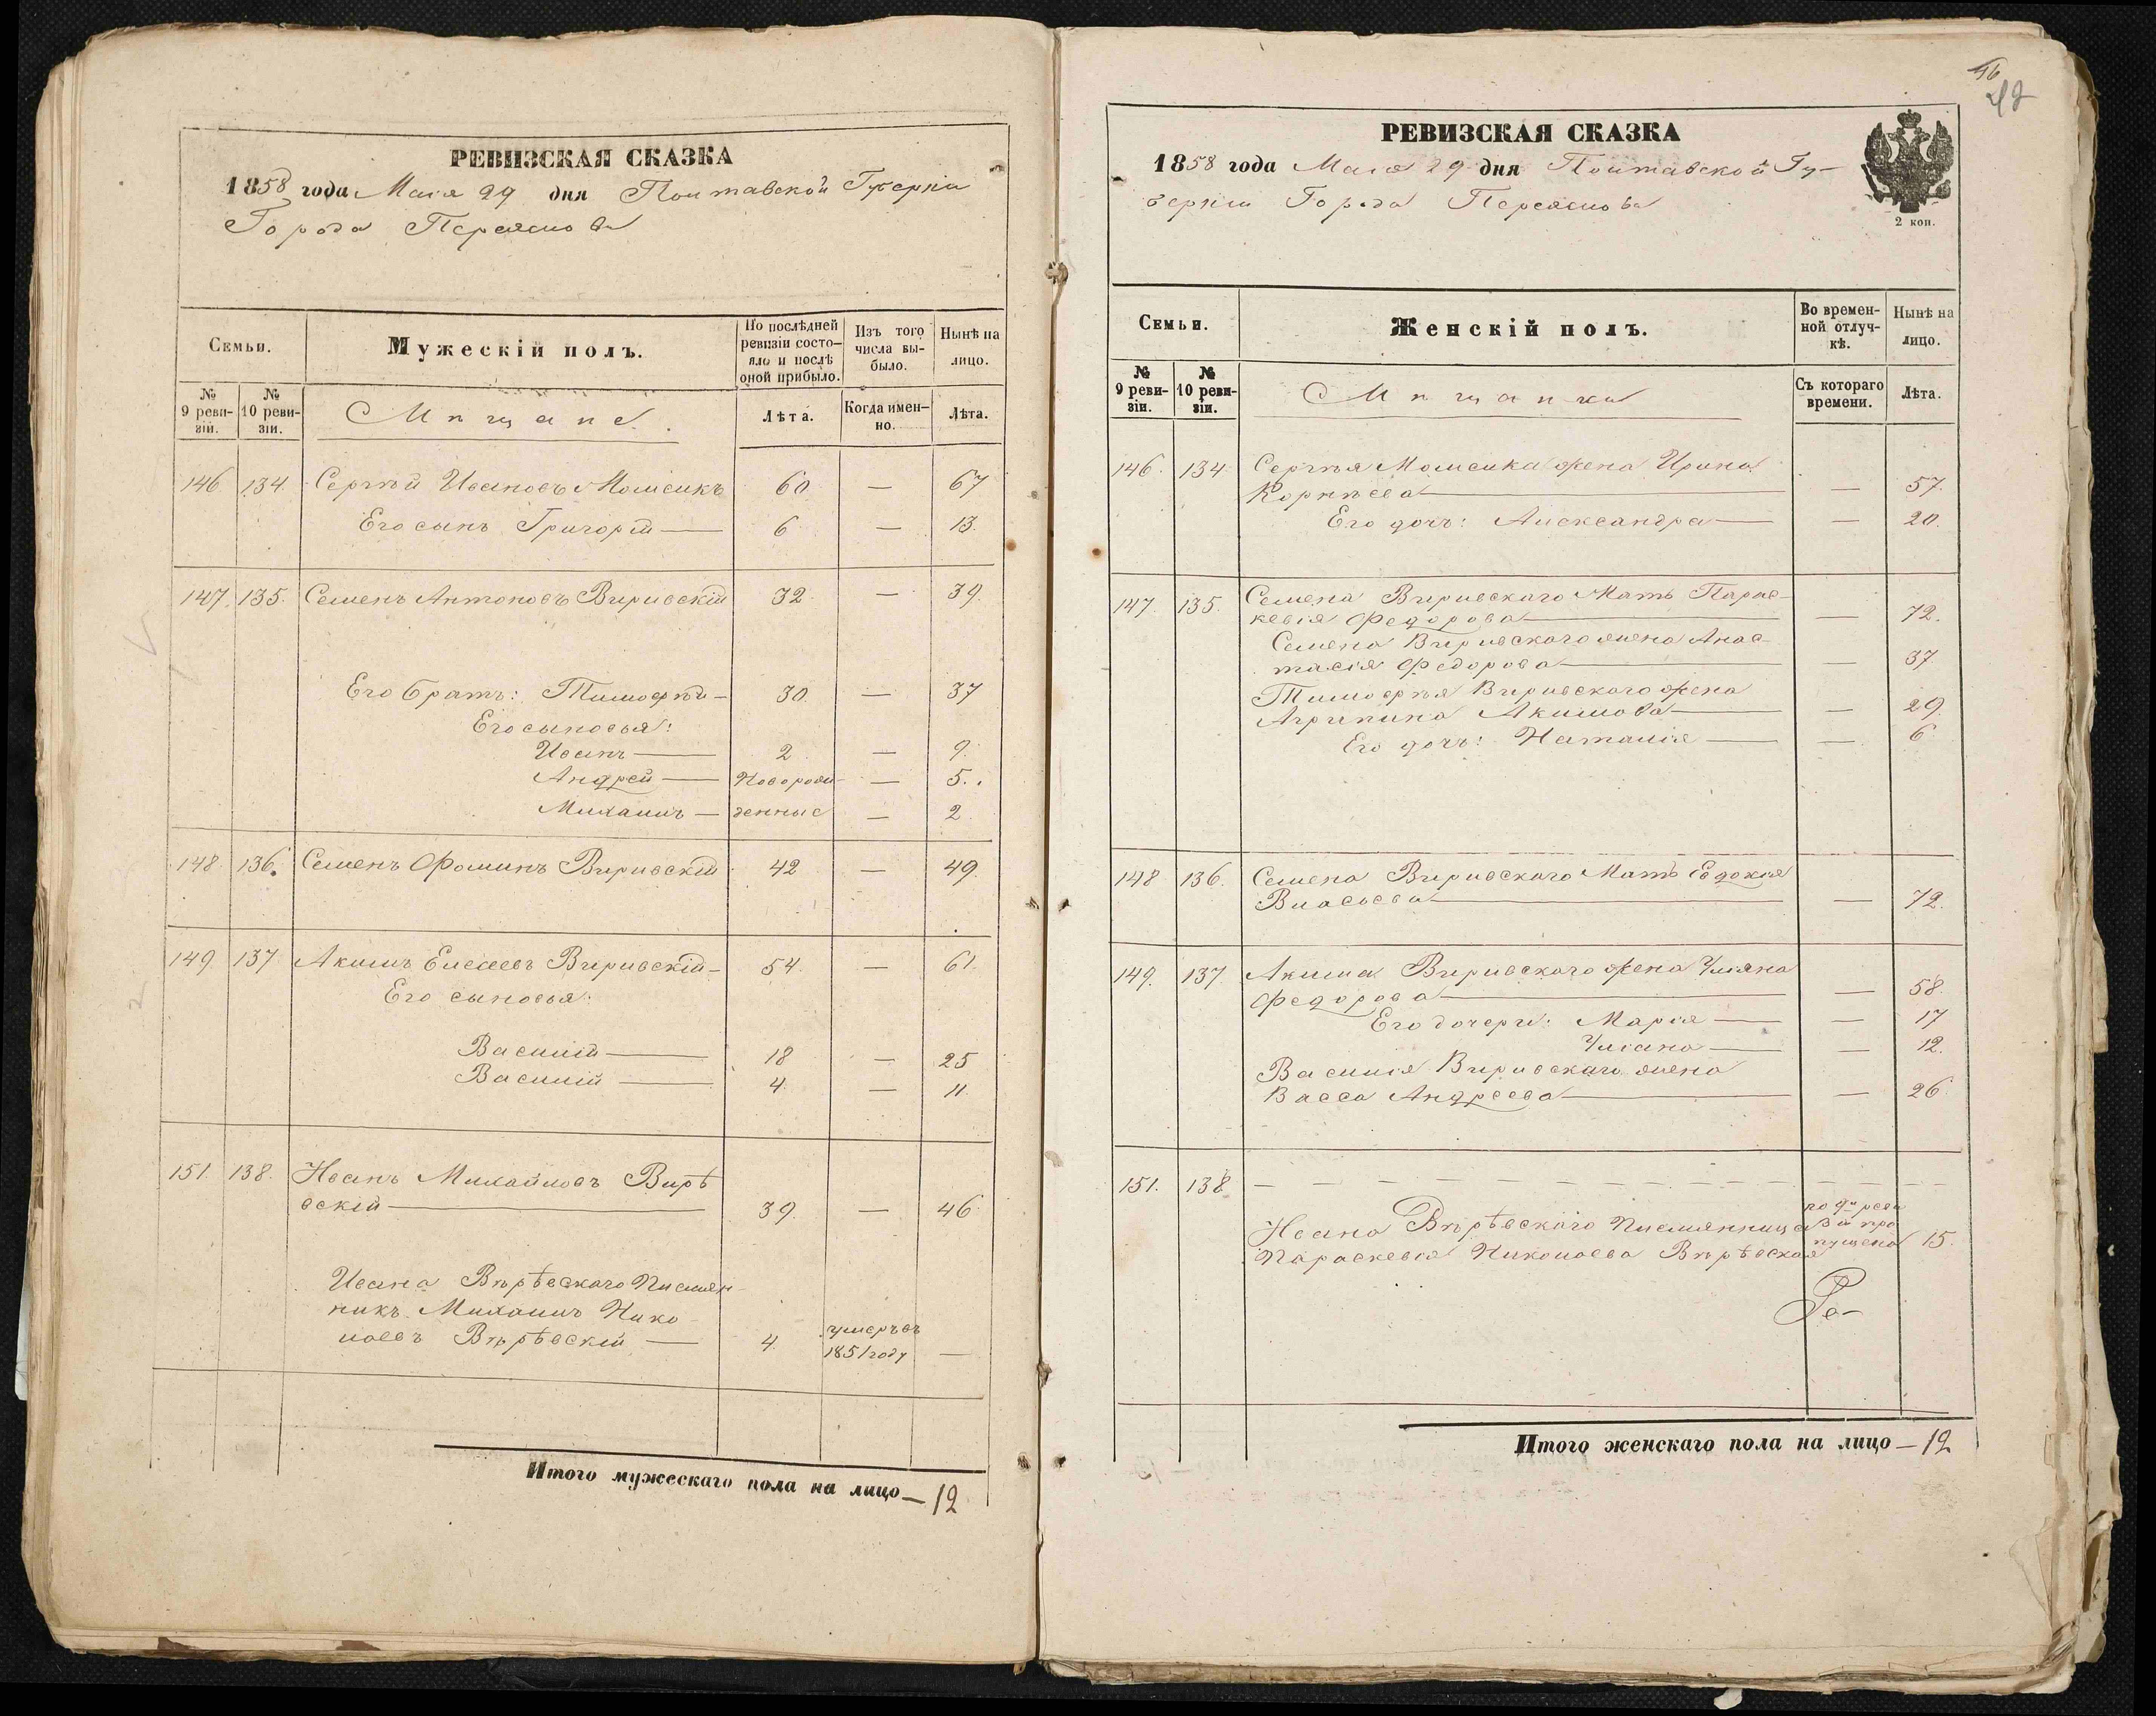 РЕВИЗСКАЯ СКАЗКА
1858 года Маія 29 дня Полтавской Губерніи
Города Переяслова
Семьи.
Мужескій полъ.
По послѣдней ревизіи состояло и послѣ оной прибыло.
Изъ того числа выбыло.
Нынѣ на лицо.
№ 9 ревизіи.
№ 10 ревизіи.
Мѣщане.
Лѣта.
Когда именно.
Лѣта.
146 134. Сергѣй Ивановъ Моисикъ 60 — 67
Его сынъ Григорій — 6 — 13.
147. 135. Семенъ Антоновъ Виривскій 32 — 39.
Его братъ: Тимофѣй — 30. — 37
Его сыновья:
Иванъ — 2 — 9.
Андрей — Новорож- — 5.
Михаилъ — денные — 2
148. 136. Семенъ Фоминъ Виривскій 42 — 49.
149. 137 Акимъ Елесеевъ Виривскій — 54. — 61.
Его сыновья:
Василій — 18 — 25
Василій — 4. — 11.
151. 138. Иванъ Михайловъ Вирѣ
вскій — 39. — 46
Ивана Вѣрѣвскаго Племян-
никъ Михаилъ Нико
лаевъ Вѣрѣвскій — 4. умеръ въ 1851 году —
Итого мужескаго пола на лицо — 12
46
47
РЕВИЗСКАЯ СКАЗКА
1858 года Маія 29 дня Полтавской Гу-
берніи Города Переяслова
2 коп.
Семьи.
Женскій полъ.
Во временной отлучкѣ.
Нынѣ на лицо.
№ 9 ревизіи.
№ 10 ревизіи.
Мѣщанки
Съ котораго времени.
Лѣта.
146. 134. Сергѣя Моисика жена Ирина
Корнѣева — — 57.
Его дочь: Александра — — 20.
147. 135. Семена Виривскаго Мать Парас-
кевія Федорова — — 72.
Семена Виривскаго жена Анас-
тасія Федорова — — 37
Тимофѣя Виривскаго жена
Агрипина Акимова — — 29.
Его дочь: Наталія — — 6
148 136. Семена Виривскаго Мать Евдокія
Власьева — — 72.
149. 137. Акима Виривскаго жена Уліяна
Федорова — — 58.
Его дочери: Марія — — 17
Уліана — — 12.
Василія Виривскаго жена
Васса Андреева — — 26.
151. 138. — — — — — —
Ивана Вѣрѣвскаго Племянница
Параскевія Николаева Вѣрѣвская 15.
по 9й реви
зіи про
пущена
Ре-
Итого женскаго пола на лицо — 12